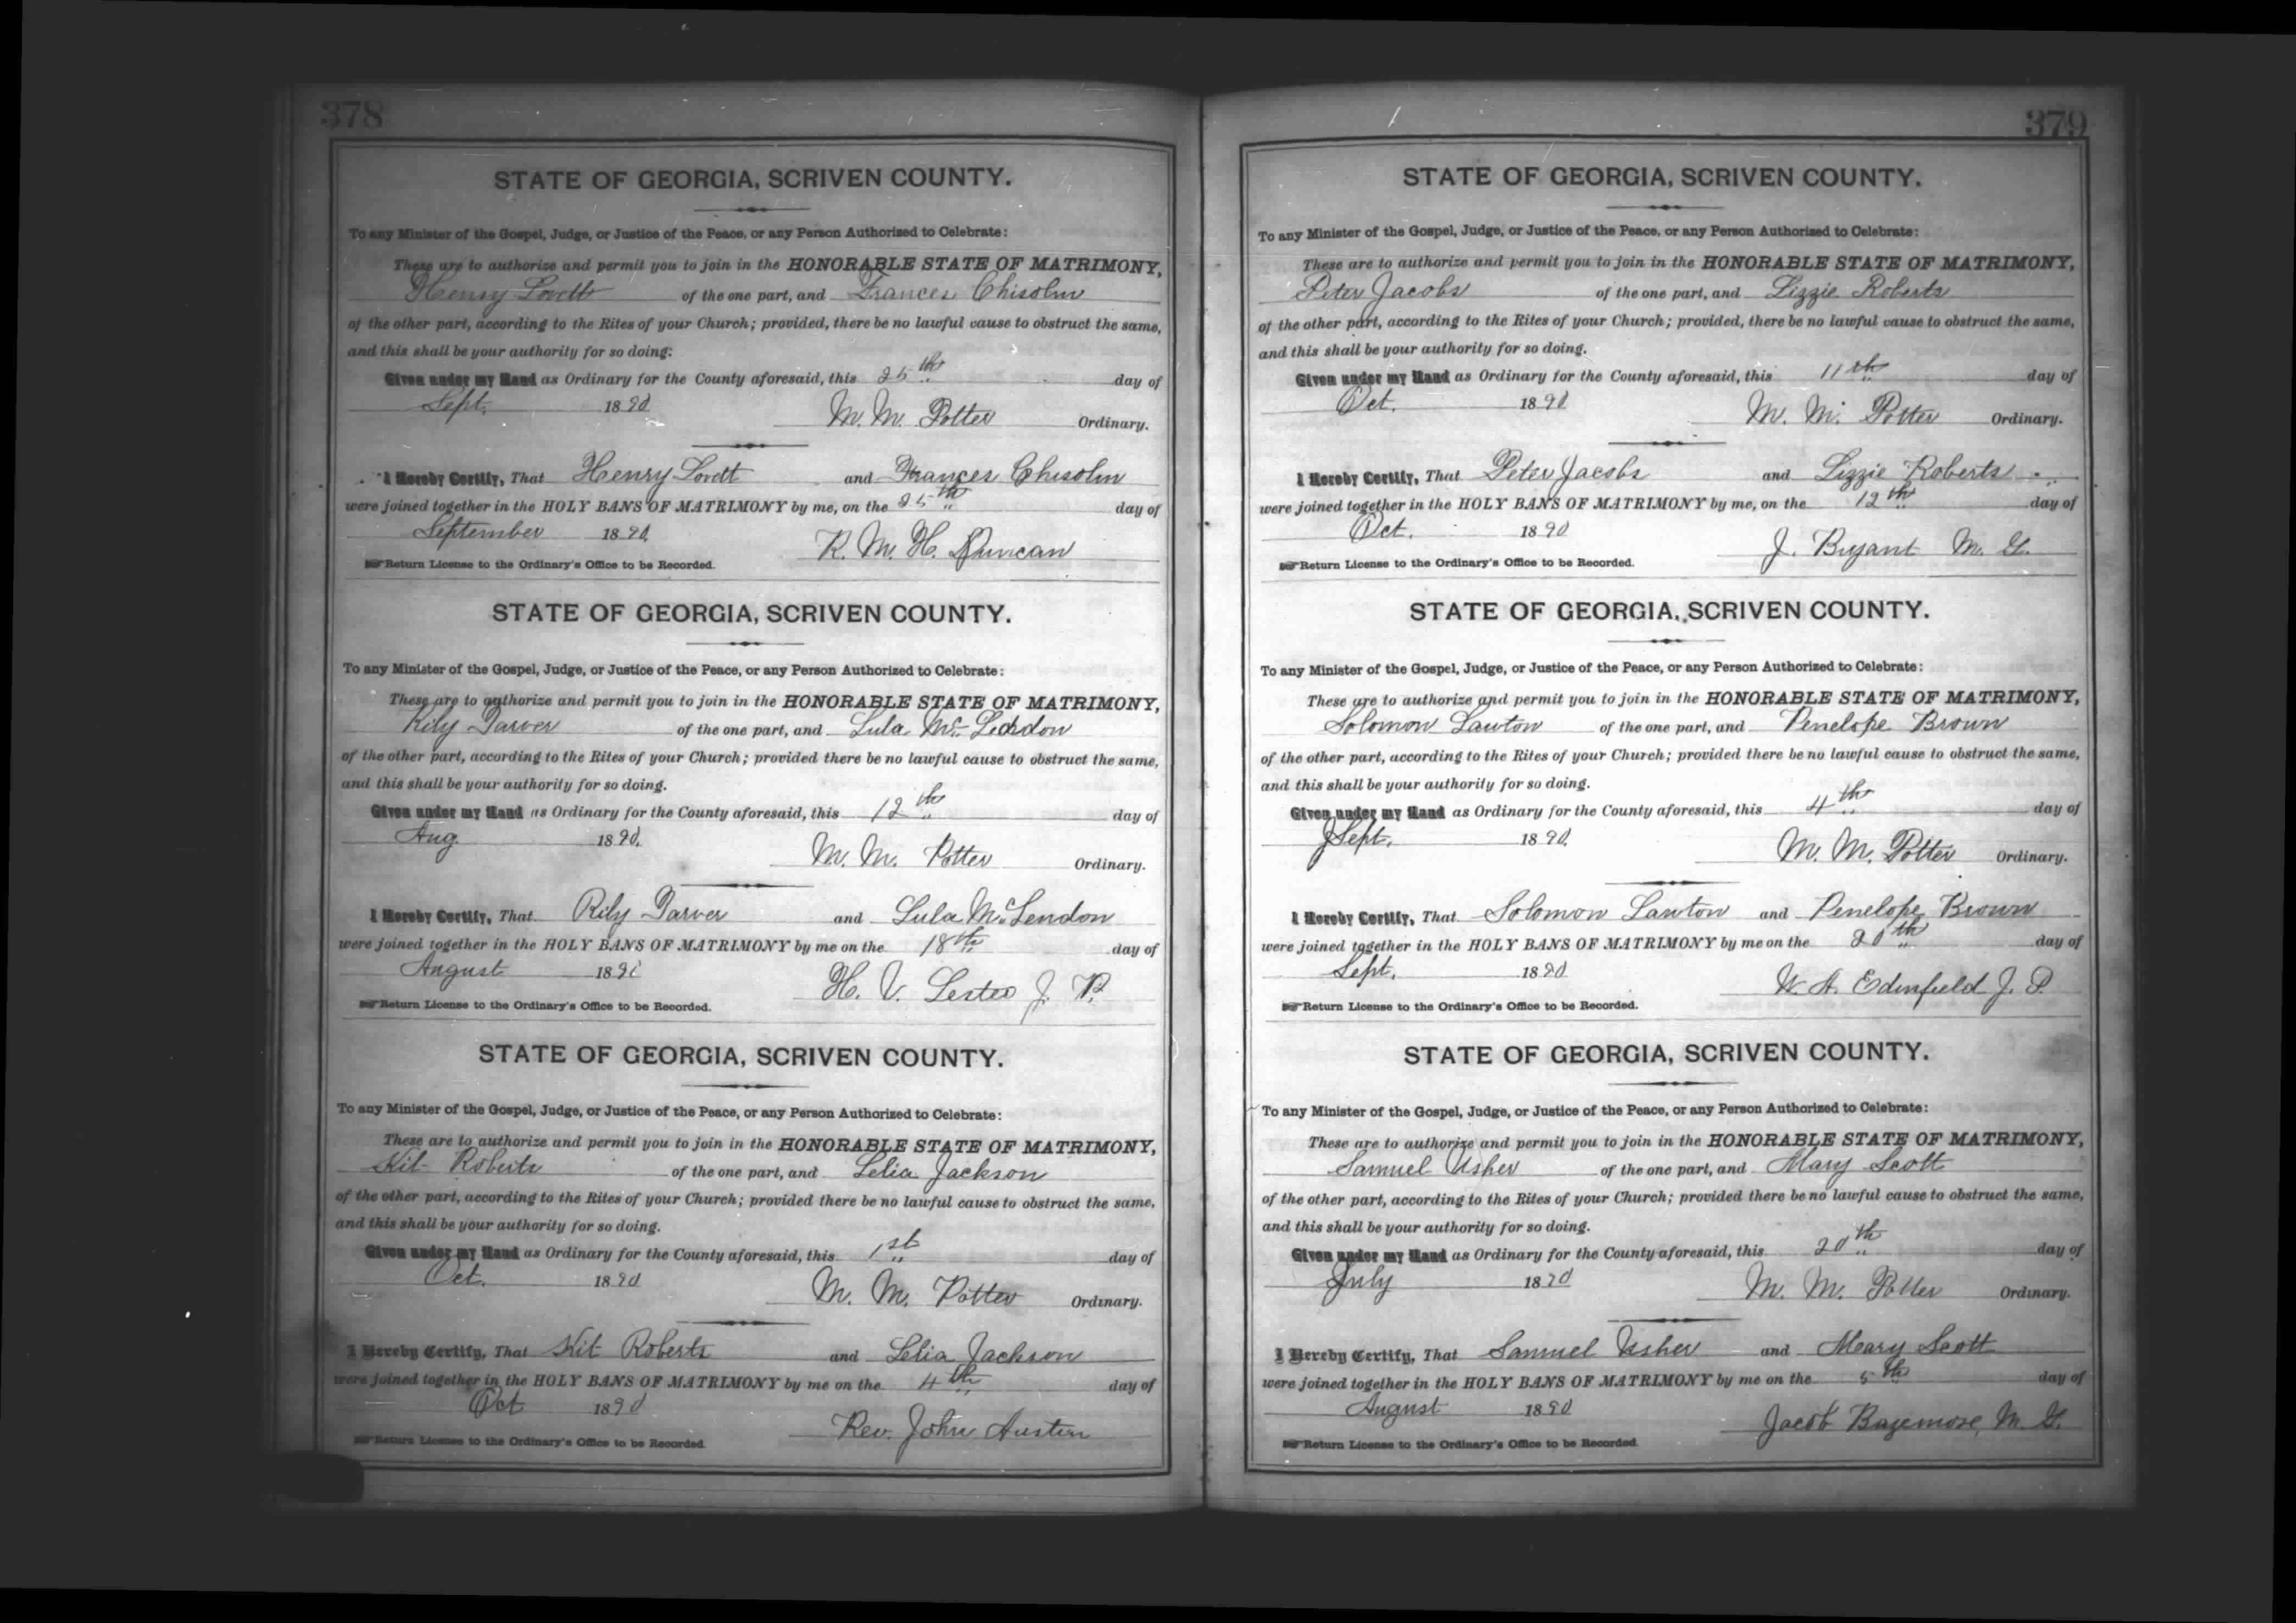 378
STATE OF GEORGIA, SCRIVEN COUNTY.
To any Minister of the Gospel, Judge, or Justice of the Peace, or any Person Authorized to Celebrate:
These are to authorize and permit you to join in the HONORABLE STATE OF MATRIMONY,
Henry Lovett of the one part, and Frances Chisolm
of the other part, according to the Rites of your Church; provided, there be no lawful cause to obstruct the same,
and this shall be your authority for so doing.
Given under my Hand as Ordinary for the County aforesaid, this 25th day of
Sept. 1890 M. M. Potter Ordinary.
I Hereby Certify, That Henry Lovett and Frances Chisolm
were joined together in the HOLY BANS OF MATRIMONY by me, on the 25th day of
September 1890. R. M. H. Duncan
Return License to the Ordinary's Office to be Recorded.
STATE OF GEORGIA, SCRIVEN COUNTY.
To any Minister of the Gospel, Judge, or Justice of the Peace, or any Person Authorized to Celebrate:
These are to authorize and permit you to join in the HONORABLE STATE OF MATRIMONY,
Rily Tarver of the one part, and Lula
of the other part, according to the Rites of your Church; provided there be no lawful cause to obstruct the same,
and this shall be your authority for so doing.
Given under my Hand as Ordinary for the County aforesaid, this 12th day of
Aug. 1890. M. M. Potter Ordinary.
I Hereby Certify, That Rily Tarver and Lula McLendon
were joined together in the HOLY BANS OF MATRIMONY by me on the 18th day of
August 1890 H. V. Lester J. P.
Return License to the Ordinary's Office to be Recorded.
STATE OF GEORGIA, SCRIVEN COUNTY.
To any Minister of the Gospel, Judge, or Justice of the Peace, or any Person Authorized to Celebrate:
These are to authorize and permit you to join in the HONORABLE STATE OF MATRIMONY,
Kit Roberts of the one part, and Lelia Jackson
of the other part, according to the Rites of your Church; provided there be no lawful cause to obstruct the same,
and this shall be your authority for so doing.
Given under my Hand as Ordinary for the County aforesaid, this 1st day of
Oct. 1890 M. M. Potter Ordinary.
I Hereby Certify, That Kit Roberts and Lelia Jackson
were joined together in the HOLY BANS OF MATRIMONY by me on the 4th day of
Oct 1890 Rev. John Austin
Return License to the Ordinary's Office to be Recorded.
379
STATE OF GEORGIA, SCRIVEN COUNTY.
To any Minister of the Gospel, Judge, or Justice of the Peace, or any Person Authorized to Celebrate:
These are to authorize and permit you to join in the HONORABLE STATE OF MATRIMONY,
Peter Jacobs of the one part, and Lizzie Roberts
of the other part, according to the Rites of your Church; provided, there be no lawful cause to obstruct the same,
and this shall be your authority for so doing.
Given under my Hand as Ordinary for the County aforesaid, this 11th day of
Oct. 1890 M. M. Potter Ordinary.
I Hereby Certify, That Peter Jacobs and Lizzie Roberts
were joined together in the HOLY BANS OF MATRIMONY by me, on the 12th day of
Oct. 1890 J. Bryant M. G.
Return License to the Ordinary's Office to be Recorded.
STATE OF GEORGIA, SCRIVEN COUNTY.
To any Minister of the Gospel, Judge, or Justice of the Peace, or any Person Authorized to Celebrate:
These are to authorize and permit you to join in the HONORABLE STATE OF MATRIMONY,
Solomon Lawton of the one part, and Penelope Brown
of the other part, according to the Rites of your Church; provided there be no lawful cause to obstruct the same,
and this shall be your authority for so doing.
Given under my Hand as Ordinary for the County aforesaid, this 4th day of
Sept. 1890. M. M. Potter Ordinary.
I Hereby Certify, That Solomon Lawton and Penelope Brown
were joined together in the HOLY BANS OF MATRIMONY by me on the 20th day of
Sept. 1890 W. A. Edenfield J. P.
Return License to the Ordinary's Office to be Recorded.
STATE OF GEORGIA, SCRIVEN COUNTY.
To any Minister of the Gospel, Judge, or Justice of the Peace, or any Person Authorized to Celebrate:
These are to authorize and permit you to join in the HONORABLE STATE OF MATRIMONY,
Samuel Usher of the one part, and Mary Scott
of the other part, according to the Rites of your Church; provided there be no lawful cause to obstruct the same,
and this shall be your authority for so doing.
Given under my Hand as Ordinary for the County aforesaid, this 20th day of
July 1890 M. M. Potter Ordinary.
I Hereby Certify, That Samuel Usher and Mary Scott
were joined together in the HOLY BANS OF MATRIMONY by me on the 5th day of
August 1890 Jacob Bazemore, M. G.
Return License to the Ordinary's Office to be Recorded.